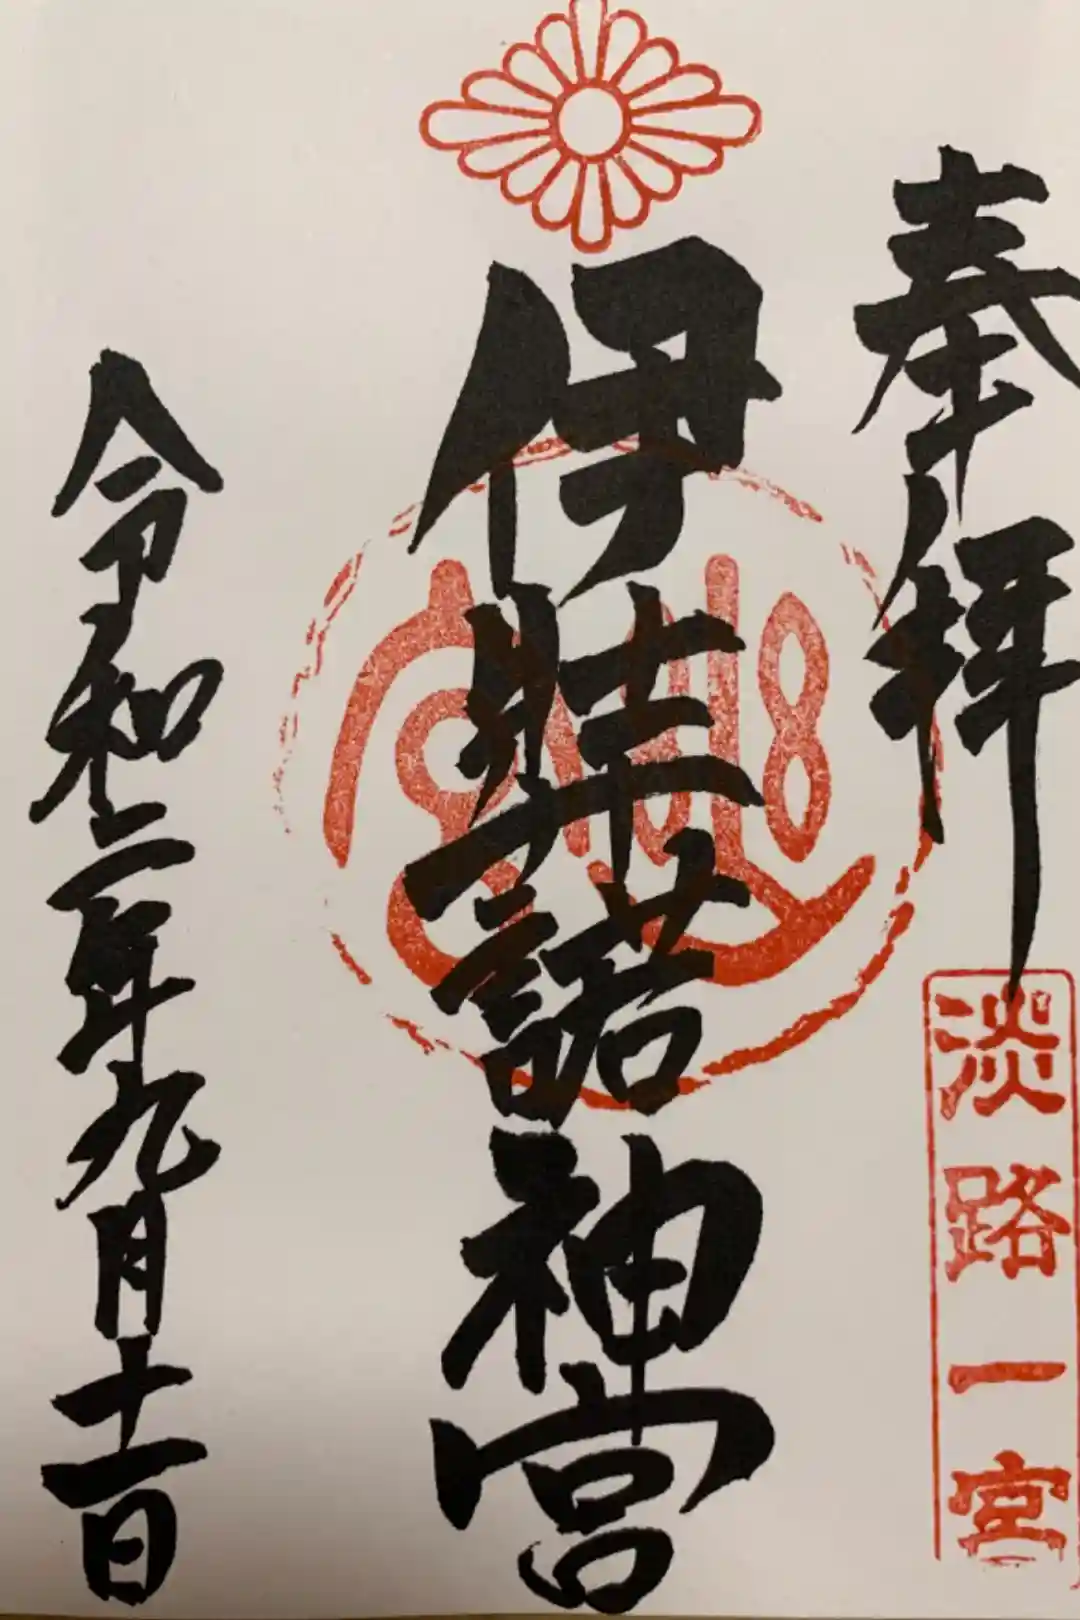 奉拝
淡路一宮
伊弉諾神宮
令和二年九月十一日